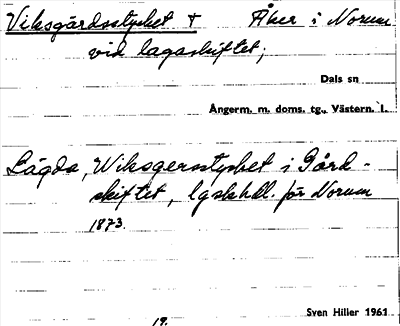 Viksgårdsstycket † Åker i Norum
vid lagaskiftet;
Dals sn
Ångerm. m. doms. tg., Västern. l.
Lägda, Wiksgersstycket i Gård-
skiftet, lgskhdl. för Norum
1873.
Sven Hiller 1961
19.